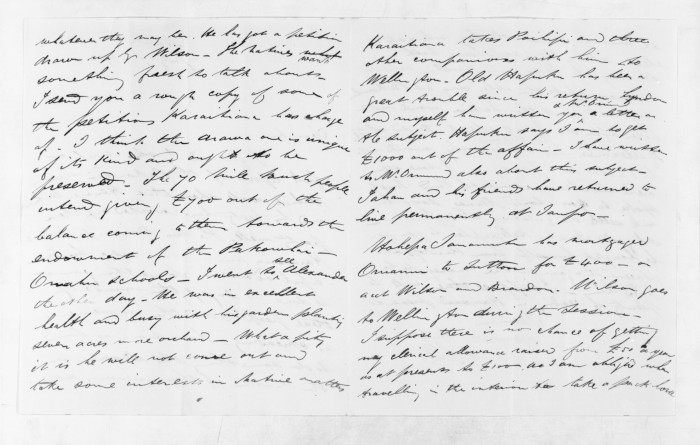 whatever they may be. He has got a petition
drawn up by Wilson - The Natives want
something fresh to talk about -
I send you a rough copy of some of
the petitions Karaitiana has charge
of. I think the Arawa one is unique
of its kind and ought to be
preserved - The 70 mile bush people
intend giving £700 out of the
balance coming to them towards the
endowment of the Pakowhai -
Omahu schools - I went to see Alexander
the other day - He was in excellent
health and busy with his garden planting
seven acres more orchard - What a pity
it is he will not come out and
take some interests in Native matters
Karaitiana takes and three
other companions with him to
Wellington. Old Hapuku has been a
great trouble since his return,
and myself have written you a letter on
the subject. Hapuku says I am to get
£1000 out of the affair - I have written
to Mr also about this subject -
and his friends have returned to
live permanently at
has mortgaged
to Sutton for £400 -
Wilson and . Wilson goes
to Wellington during the Session -
I suppose there is no chance of getting
my clerical allowance raised from £50 a year
as at present to £100. as I am obliged when
travelling in the interior to take a pack horse